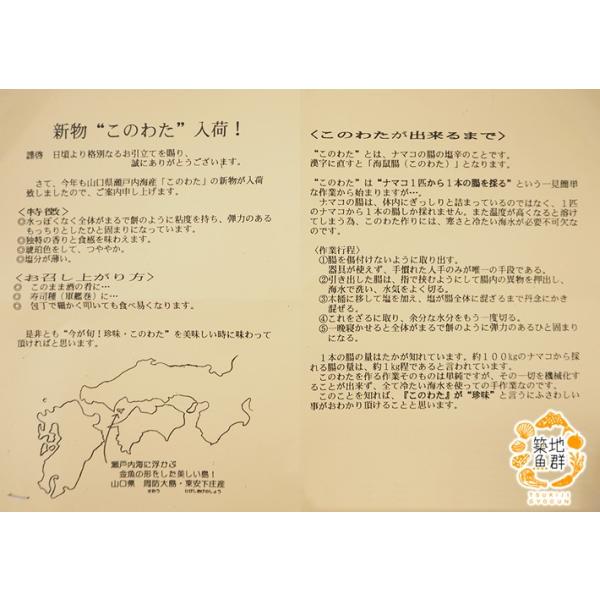 新物“このわた”入荷！
謹啓 日頃より格別なるお引立てを賜り、
誠にありがとうございます。
さて、今年も山口県瀬戸内海産「このわた」の新物が入荷
致しましたので、ご案内申し上げます。
＜特徴＞
◎水っぽくなく全体がまるで餅のように粘度を持ち、弾力のある
もっちりとしたひと固まりになっています。
◎独特の香りと食感を味わえます。
◎琥珀色をして、つややか。
◎塩分が薄い。
＜お召し上がり方＞
◎ このまま酒の肴に…
◎ 寿司種（軍艦巻）に…
◎ 包丁で細かく叩いても食べ易くなります。
是非とも“今が旬！珍味・このわた”を美味しい時に味わって
頂ければと思います。
瀬戸内海に浮かぶ
金魚の形をした美しい島！
山口県 周防大島・東安下庄産
＜このわたが出来るまで＞
“このわた”とは、ナマコの腸の塩辛のことです。
漢字に直すと「海鼠腸（このわた）」となります。
“このわた”は“ナマコ１匹から１本の腸を採る”という一見簡単
な作業から始まりますが…。
ナマコの腸は、体内にぎっしりと詰まっているのではなく、１匹
のナマコから１本の腸しか採れません。また温度が高くなると溶け
てしまう為、このわた作りには、寒さと冷たい海水が必要不可欠な
のです。
〈作業行程〉
①腸を傷付けないように取り出す。
器具が使えず、手慣れた人手のみが唯一の手段である。
②引き出した腸は、指で挟むようにして腸内の異物を押出し、
海水で洗い、水気をよく切る。
③木桶に移して塩を加え、塩が腸全体に混ざるまで丹念にかき
混ぜる。
④これをざるに取り、余分な水分をもう一度切る。
⑤一晩寝かせると全体がまるで餅のように弾力のあるひと固まり
になる。
１本の腸の量はたかが知れています。約１００kgのナマコから採
れる腸の量は、約１kg程であると言われています。
このわたを作る作業そのものは単純ですが、その一切を機械化す
ることが出来ず、全て冷たい海水を使っての手作業なのです。
このことを知れば、『このわた』が“珍味”と言うにふさわしい
事がおわかり頂けることと思います。
築地
魚群
TSUKIJI
GYOGUN